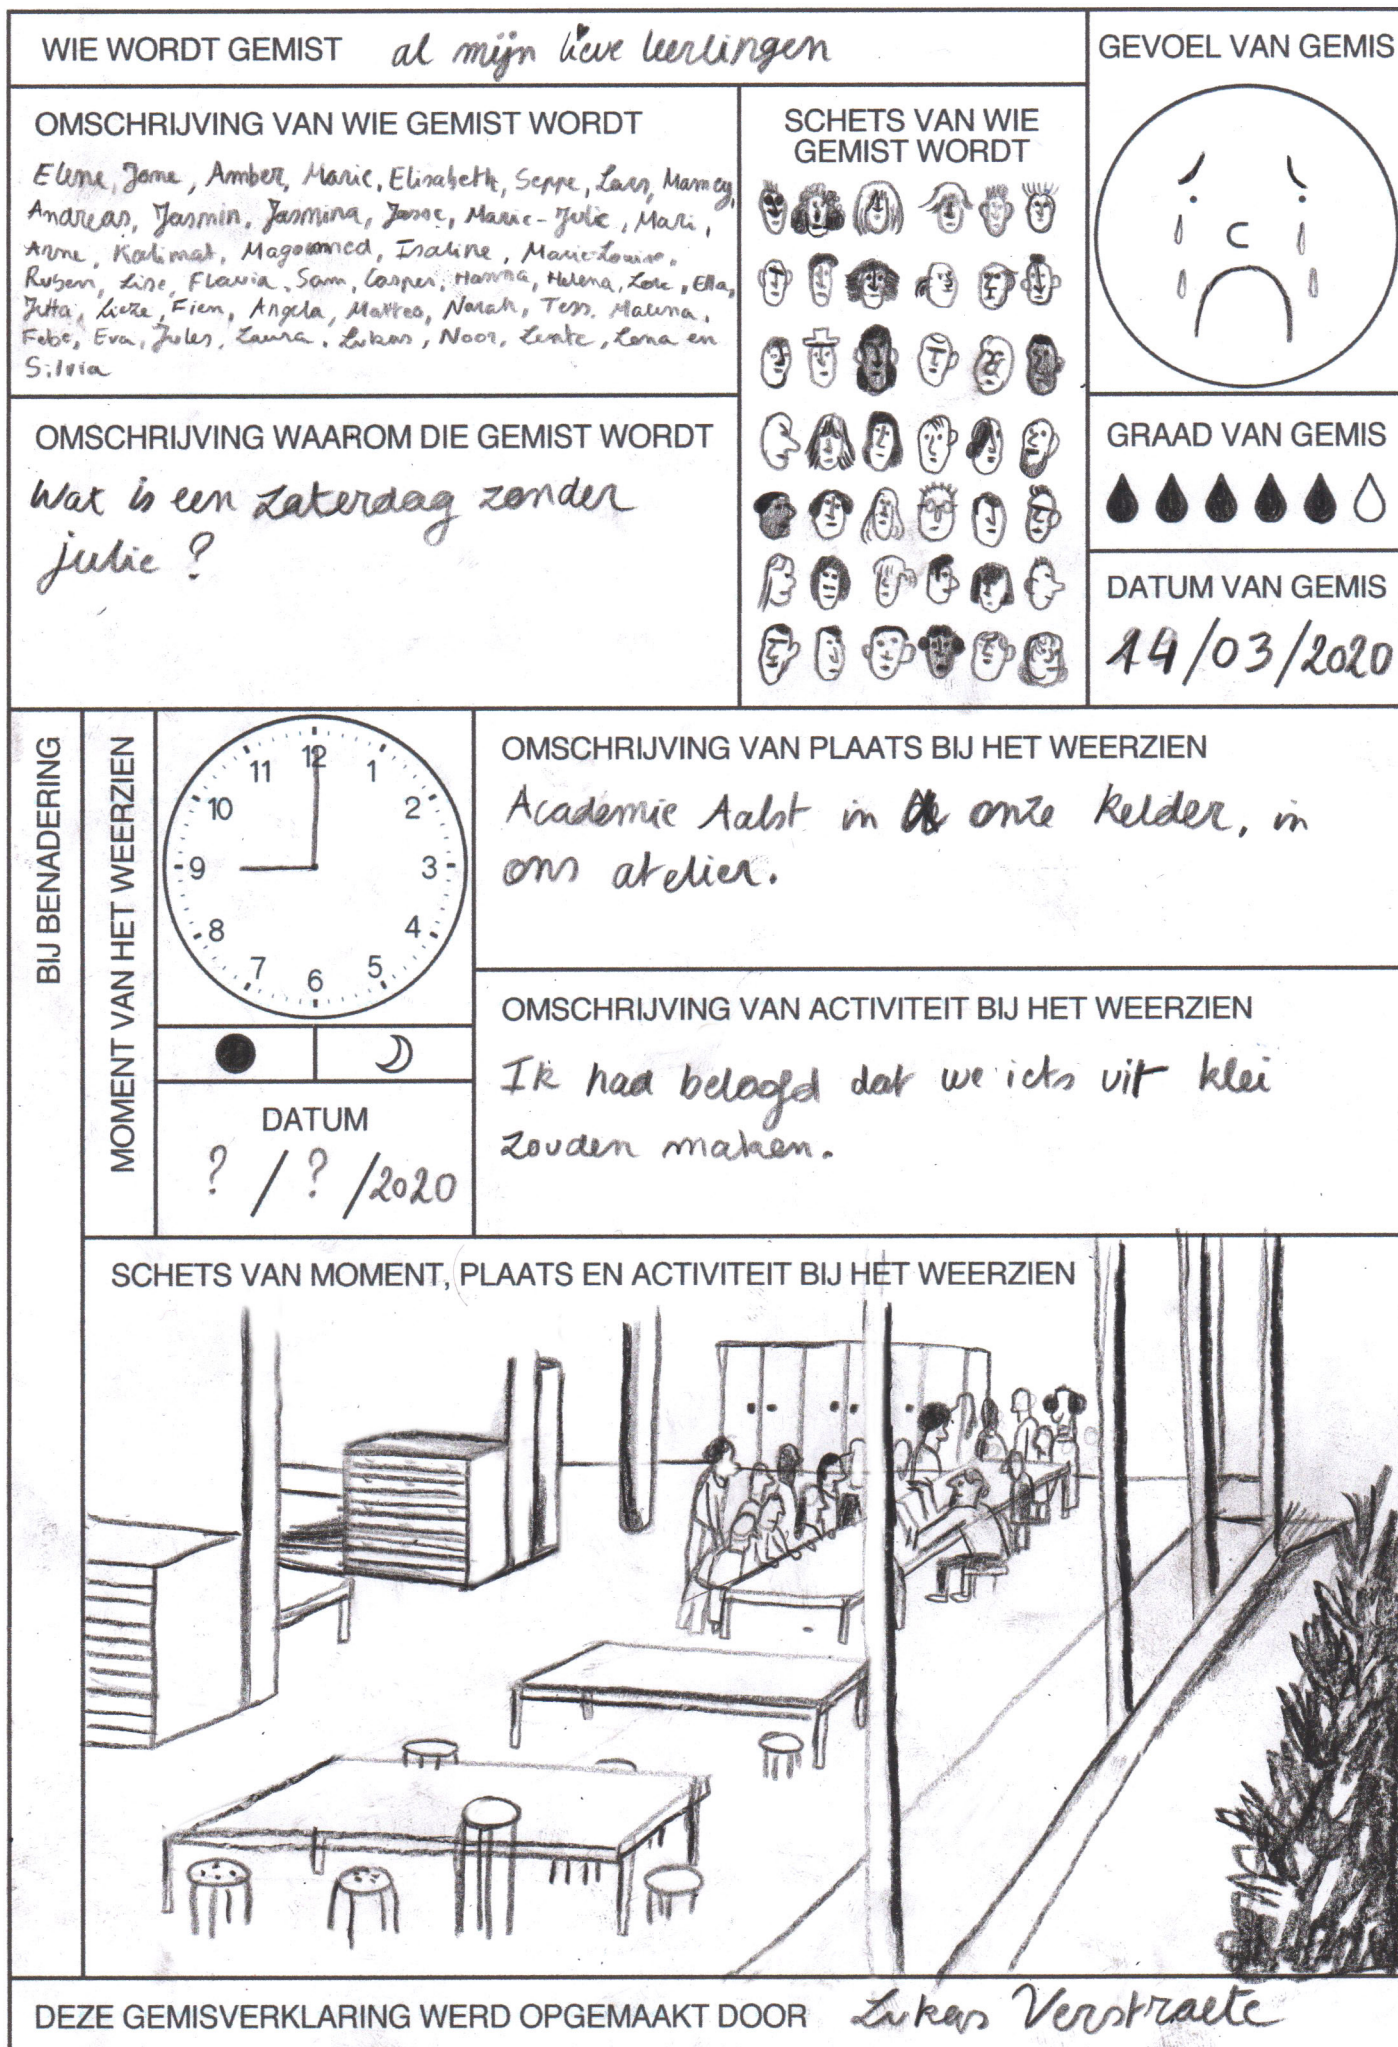 WIE WORDT GEMIST al mijn lieve leerlingen
GEVOEL VAN GEMIS
OMSCHRIJVING VAN WIE GEMIST WORDT
Elene, Jone, Amber, Marie, Elisabeth, Seppe, Lars,
Andreas, Jasmin, Jasmina, Jasse, Marie-Julie, Mari,
Arne, Kalimat, Magomed, Isaline, Marie-Louise,
Ruben, Lise, Flavia, Sam, Casper, Hanna, Helena, Lore, Ella,
Jutta, Lieze, Fien, Angela, Matteo, Narah, Tess, Malina,
Febe, Eva, Jules, Laura, Lukas, Noor, Lente, Lena en
Silvia
SCHETS VAN WIE
GEMIST WORDT
OMSCHRIJVING WAAROM DIE GEMIST WORDT
Wat is een zaterdag zonder
julie ?
GRAAD VAN GEMIS
DATUM VAN GEMIS
14/03/2020
BIJ BENADERING
MOMENT VAN HET WEERZIEN
12
1
2
3
4
5
6
7
8
9
10
11
DATUM
? / ? /2020
OMSCHRIJVING VAN PLAATS BIJ HET WEERZIEN
Academie Aalst in onze kelder, in
ons atelier.
OMSCHRIJVING VAN ACTIVITEIT BIJ HET WEERZIEN
Ik had beloofd dat we iets uit klei
zouden maken.
SCHETS VAN MOMENT, PLAATS EN ACTIVITEIT BIJ HET WEERZIEN
DEZE GEMISVERKLARING WERD OPGEMAAKT DOOR Lukas Verstraete